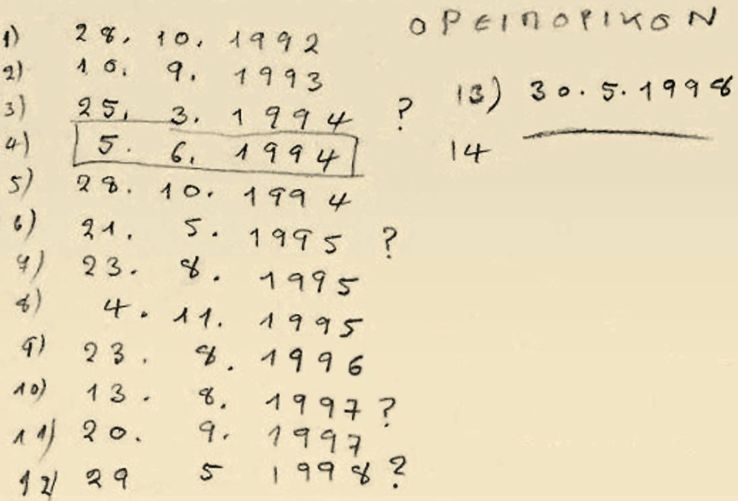 ΟΡΕΙΠΟΡΙΚΟΝ
1) 28. 10. 1992
2) 10. 9. 1993
3) 25. 3. 1994 ?
4) 5. 6. 1994
5) 28. 10. 1994
6) 21. 5. 1995 ?
7) 23. 8. 1995
8) 4. 11. 1995
9) 23. 8. 1996
10) 13. 8. 1997 ?
11) 20. 9. 1997
12) 29 5 1998 ?
13) 30.5.1998
14